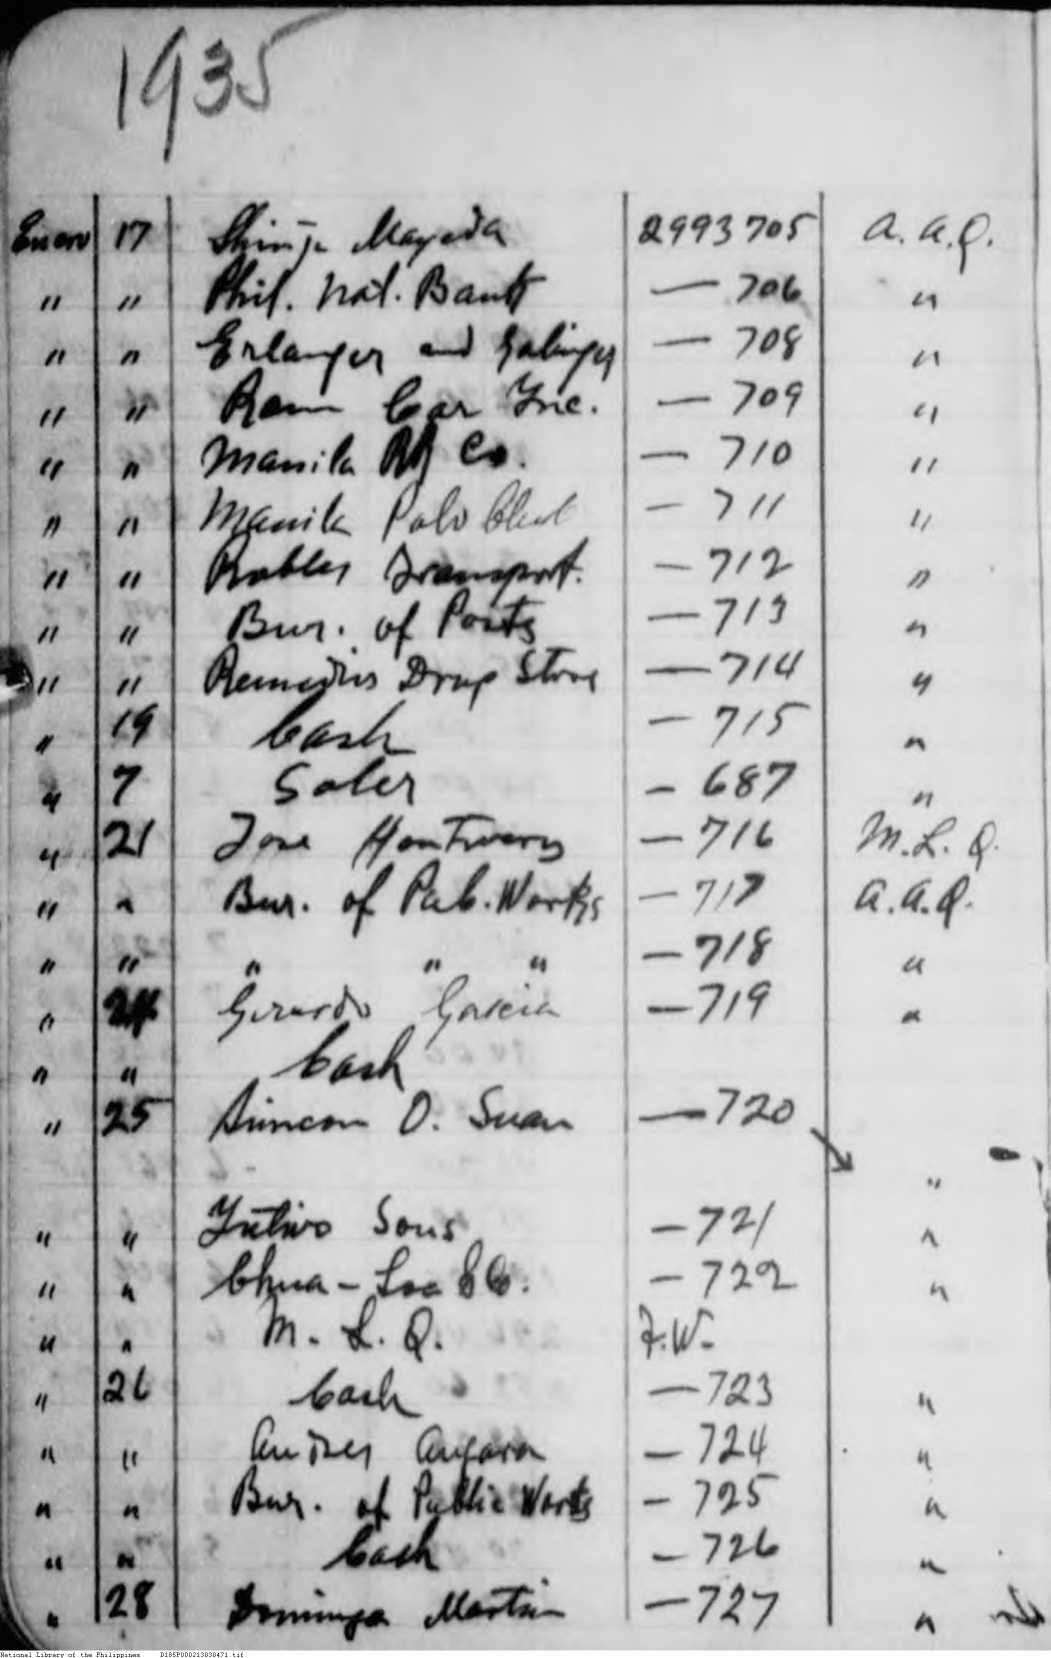 1935
Enero 17 Shinji Mayeda 2993705 A. A. Q.
" " Phil. Nat. Bank — 706 "
" " Erlanger and Galinger — 708 "
" " Car Inc. — 709 "
" " Manila RR Co. — 710 "
" " Manila Polo Club — 711 "
" " Robles Transport. — 712 "
" " Bur. of Posts — 713 "
" " Remedios Drug Store — 714 "
" 19 Cash — 715 "
" 7 Soler — 687 "
" 21 Jose — 716 M. L. Q.
" " Bur. of Pub. Works — 717 A. A. Q.
" " " " " — 718 "
" 24 Gerardo Garcia — 719 "
" " Cash
" 25 O. Suan — 720
"
" " Yutivo Sons — 721 "
" " Chua - & Co. — 722 "
" " M. L. Q. F. W.
" 26 Cash — 723 "
" " Andres Angara — 724 "
" " Bur. of Public Works — 725 "
" " Cash — 726 "
" 28 Martin — 727 "
National Library of the Philippines D185P000213030471.tif